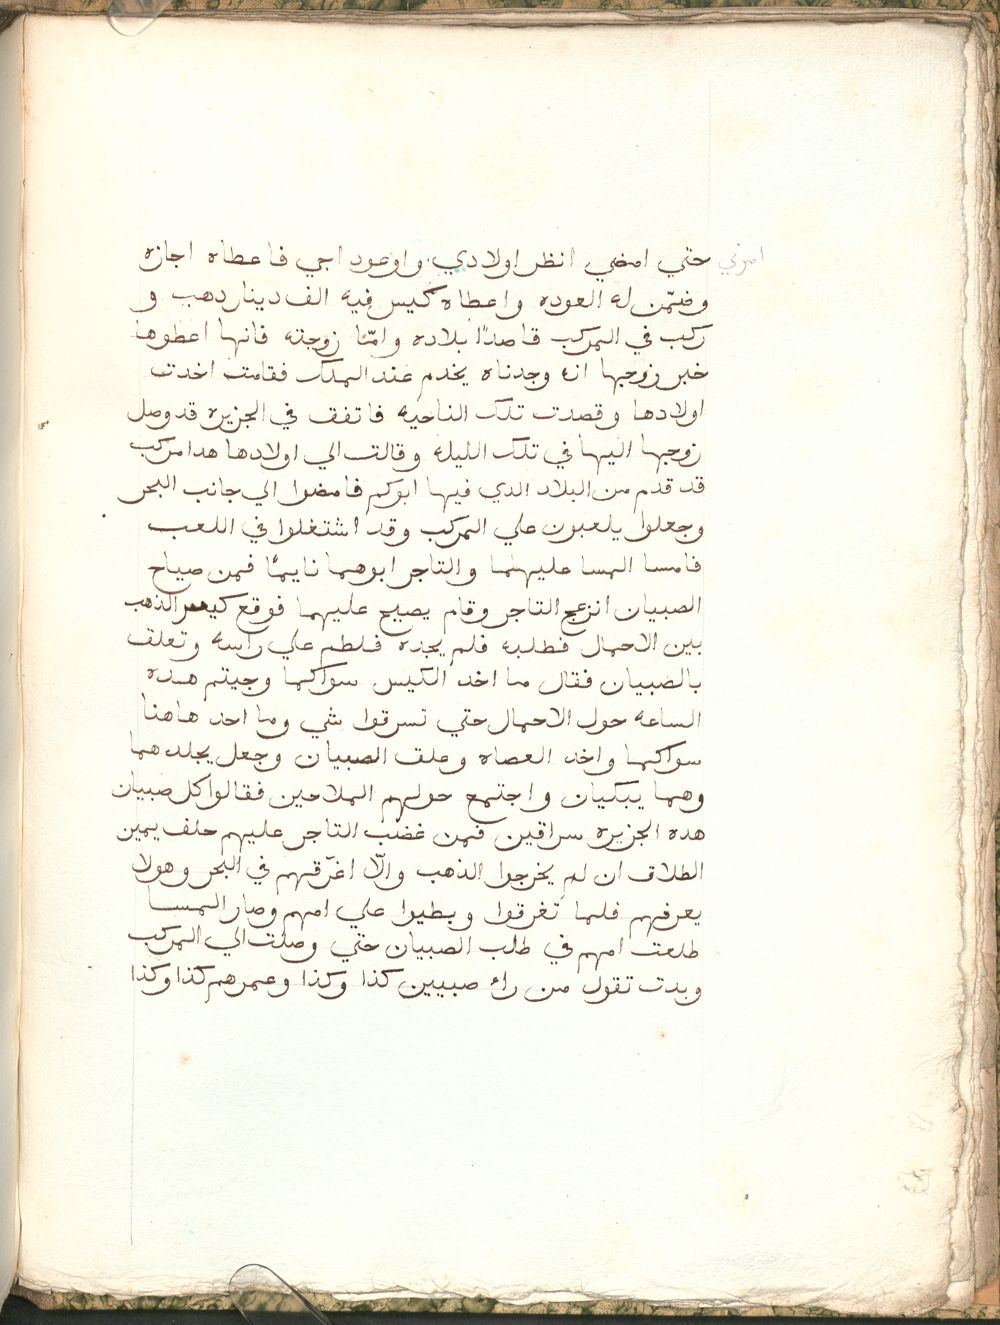 امرني حتي امضي انظر اولادي واوعود اجي فاعطاه اجازه
وضمّن له العوده واعطاه كيس فيه الف دينار دهب و
ركب في المركب قاصدًا بلاده وامّا زوجته فانها اعطوها
خبر زوجها انه وجدناه يخدم عند الملك فقامت اخدت
اولادها وقصدت تلك الناحيه فاتفق في الجزيره قد وصل
زوجها اليها في تلك الليله وقالت الي اولادها هدا مركب
قد قدم من البلاد الدي فيها ابوكم فامضوا الي جانب البحر
وجعلوا يلعبون علي المركب وقد اشتغلوا في اللعب
فامسا المسا عليهما والتاجر ابوهما نايمًا فمن صياح
الصبيان انزعج التاجر وقام يصيح عليهما فوقع كيس الذهب
بين الاحمال فطلبه فلم يجده فلطم علي راسه وتعلق
بالصبيان فقال ما اخد الكيس سواكما وجيتم هده
الساعه حول الاحمال حتي تسرقوا شي وما احد هاهنا
سواكما واخد العصاه وعلق الصبيان وجعل يجلدهما
وهما يبكيان واجتمع حولهم الملاحين فقالوا كل صبيان
هده الجزيره سراقين فمن غضب التاجر عليهم حلف يمين
الطلاق ان لم يخرجوا الذهب والّا اغرّقهم في البحر وهولا
يعرفهم فلما تغرقوا وبطيوا علي امهم وصار المسا
طلعت امهم في طلب الصبيان حتي وصلت الي المركب
وبدت تقول من راء صبيين كذا وكذا وعمرهم كذا وكذا